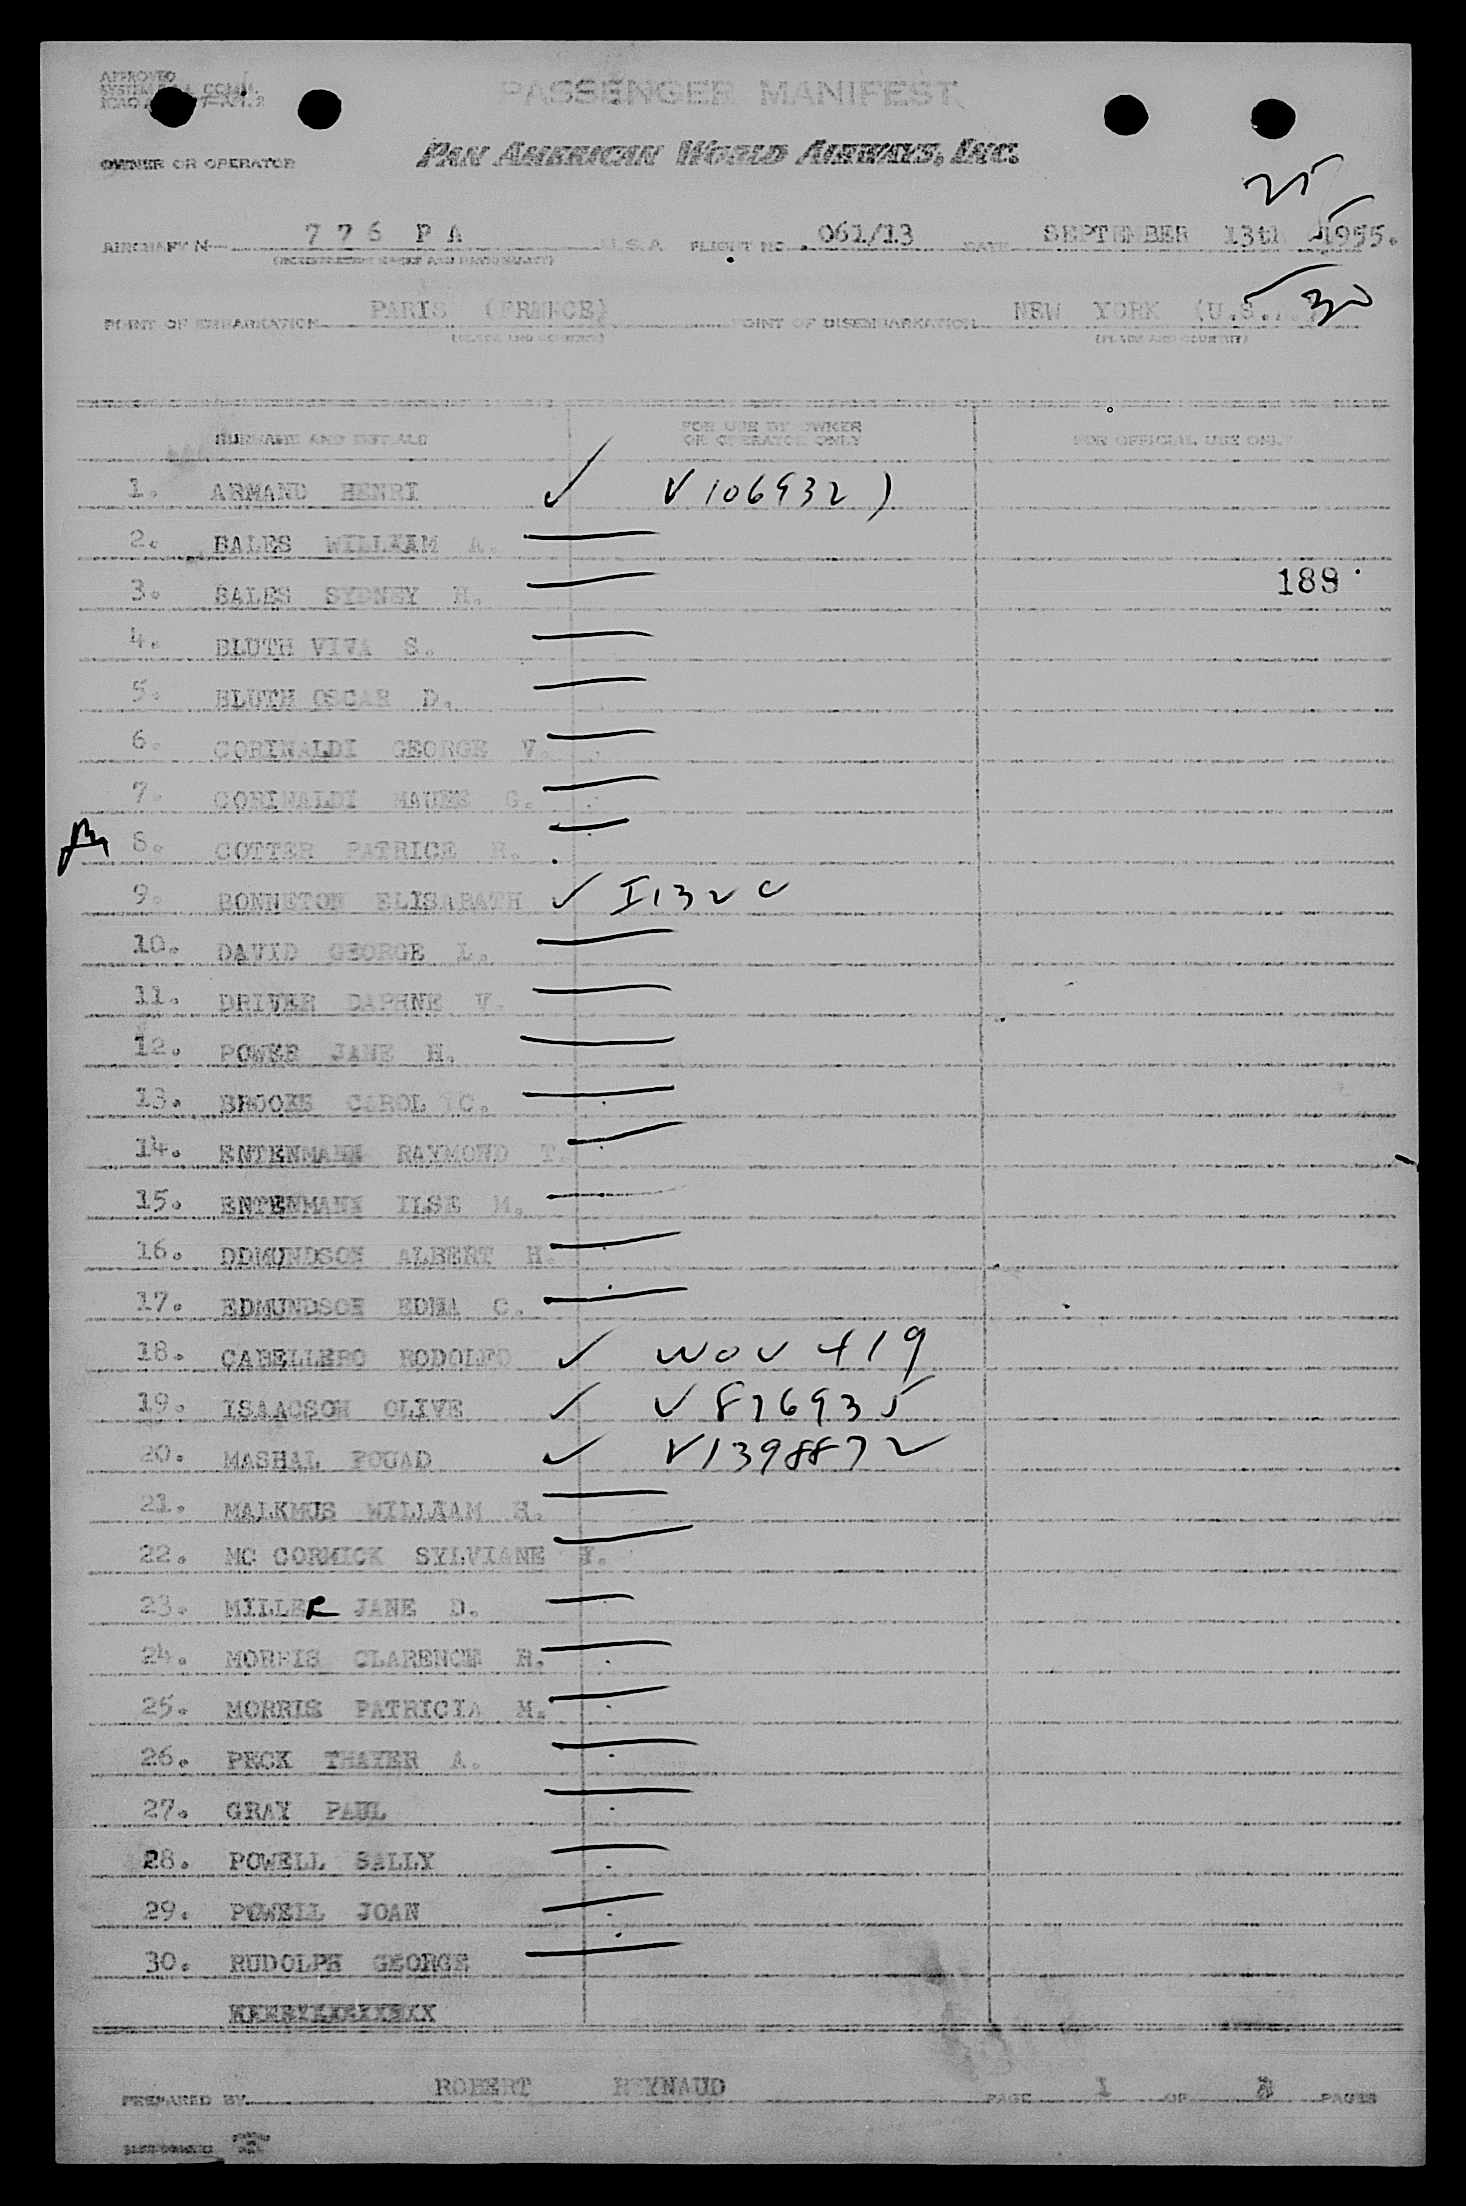 APPROVED
PASSENGER MANIFEST
OWNER OR OPERATOR PAN AMERICAN WORLD AIRWAYS, INC.
25
AIRCRAFT N 776 PA U.S.A. FLIGHT NO 061/13 DATE SEPTEMBER 13th 1955.
(REGISTRATION MARKS AND NATIONALITY)
5 30
POINT OF EMBARKATION PARIS (FRANCE) POINT OF DISEMBARKATION NEW YORK (U.S.
(PLACE AND COUNTRY) (PLACE AND COUNTRY)
SURNAME AND INITIALS FOR USE BY OWNER OR OPERATOR ONLY FOR OFFICIAL USE ONLY
1. ARMAND HENRI ✓ V1069321
2. BALES WILLIAM A.
3. BALES SYDNEY H. 188
4. BLUTH VIVA S.
5. BLUTH OSCAR D.
6. CORINALDI GEORGE V.
7. CORINALDI G.
8. COTTER PATRICE R.
9. BONNETON ELISABATH ✓ I132 C
10. DAVID GEORGE L.
11. DRIVER DAPHNE V.
12. POWER JANE H.
13. BROOKS CAROL C.
14. ENTENMANN RAYMOND T.
15. ENTENMANN ILSE M.
16. DDMUNDSON ALBERT H.
17. EDMUNDSON EDNA C.
18. CABELLERO RODOLFO ✓ NOV 419
19. ISAACSON OLIVE ✓ V876935
20. MASHAL FOUAD ✓ V1398872
21. MALKMUS WILLIAM H.
22. MC CORMICK SYLVIANE Y.
23. MILLER JANE D.
24. MORRIS CLARENCE R.
25. MORRIS PATRICIA M.
26. PECK THAYER A.
27. GRAY PAUL
28. POWELL SALLY
29. POWELL JOAN
30. RUDOLPH GEORGE
PREPARED BY ROBERT REYNAUD PAGE 1 OF PAGES